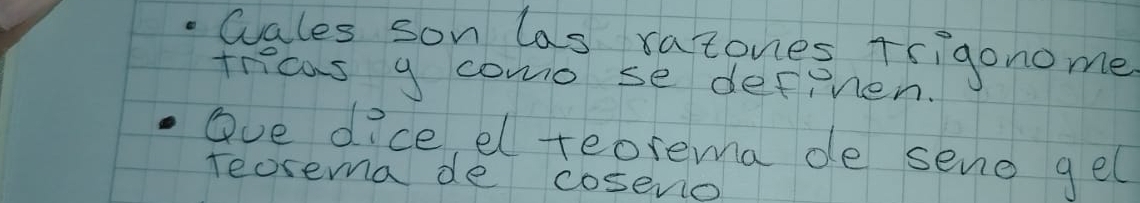 • Cuales son las razones trigonome-
tricas y como se definen.
• Que dice el teorema de seno y el
teorema de coseno